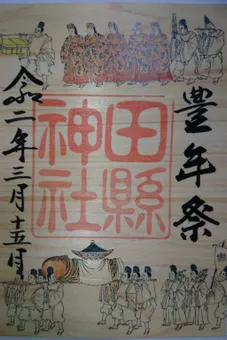 豊年祭
田縣神社
令和二年三月十五日